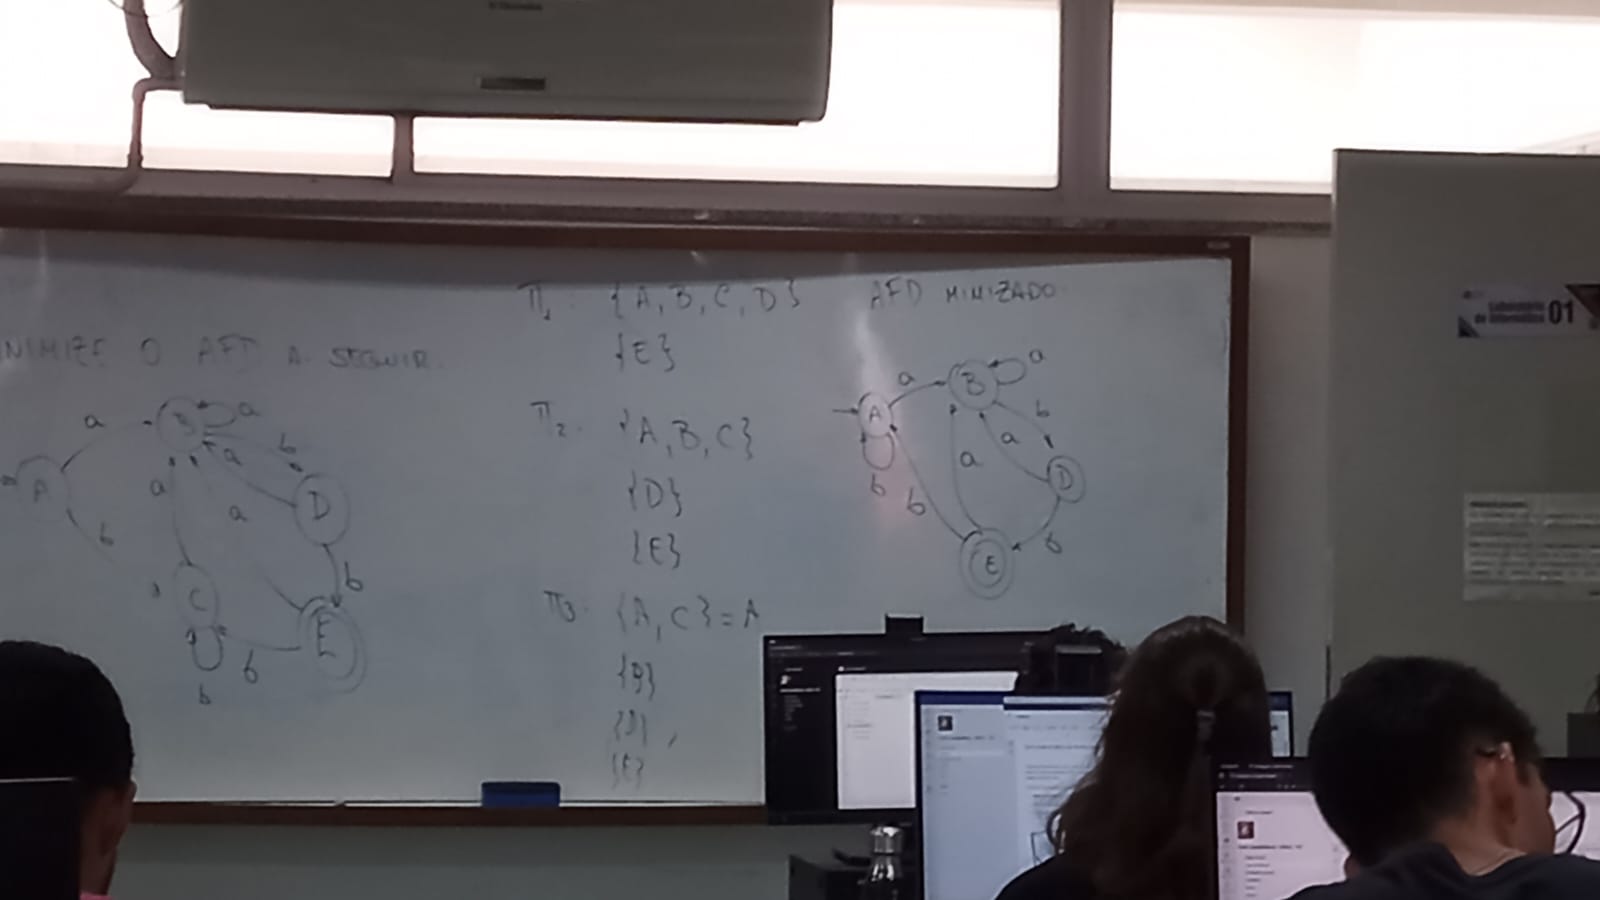 NIMIZE O AFD A SEGUIR.
a
B
a
A
b
a
a
D
b
a
b
C
E
b
b
π1. {A, B, C, D}
{E}
π2. {A, B, C}
{D}
{E}
π3. {A, C} = A
{B}
{D},
{E}
AFD MINIZADO
a
B
a
A
b
a
a
D
b
b
b
E
Laboratório
de Informática 01